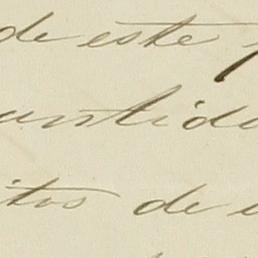 de este
antida
itos de